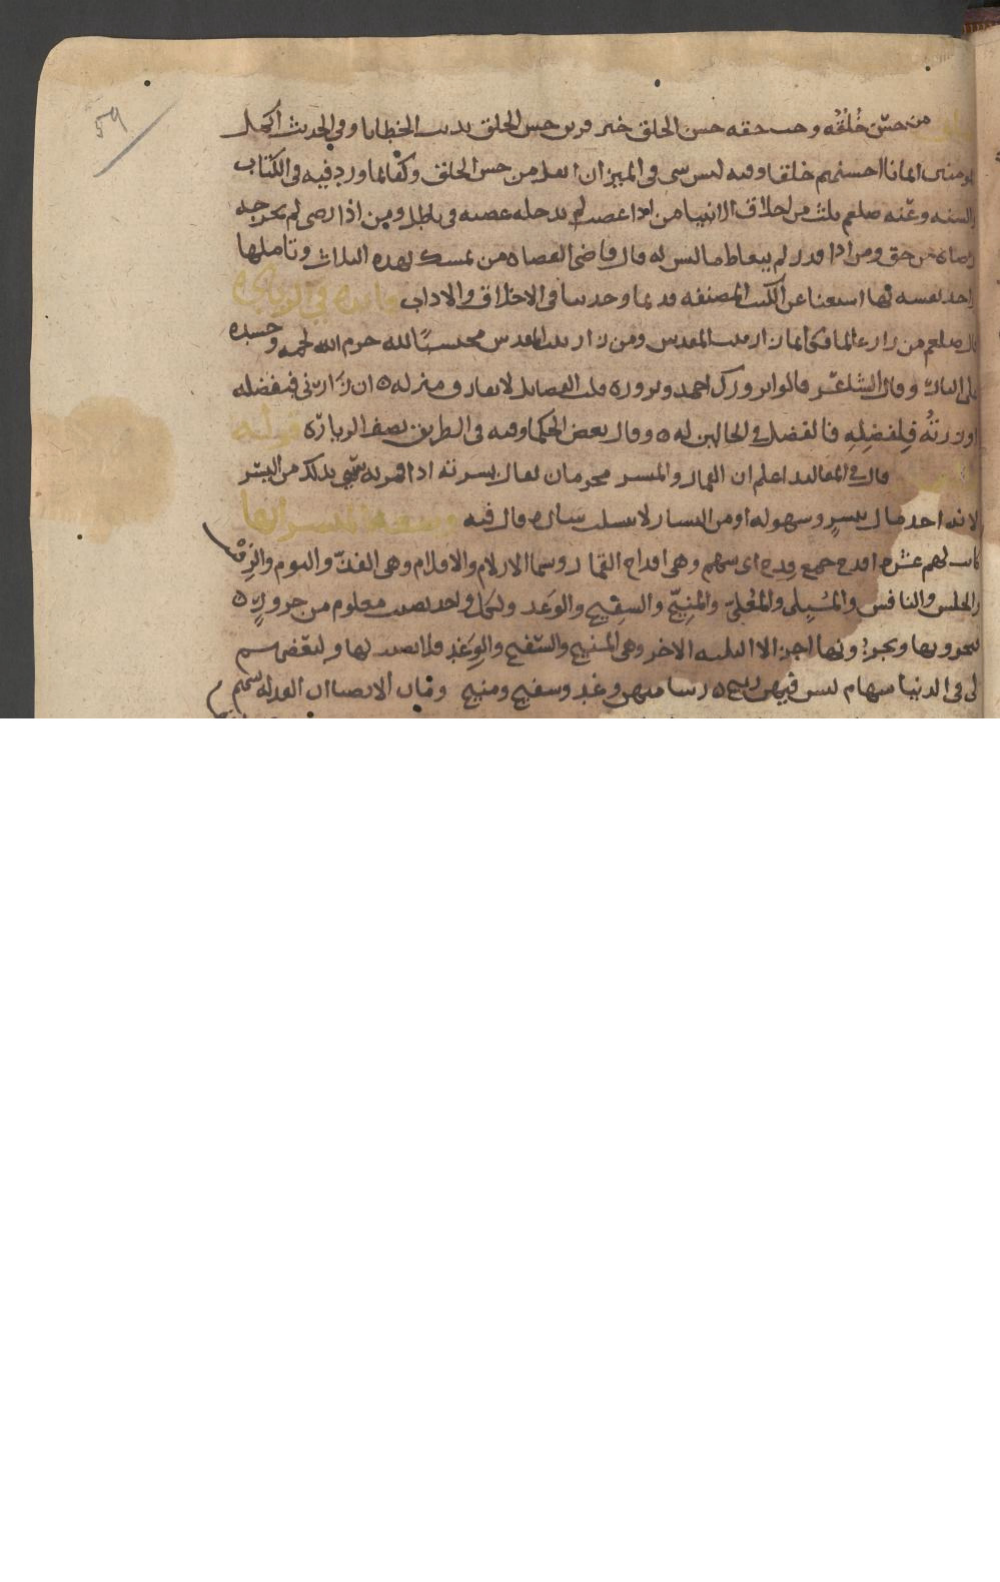 59
من حسّن خُلُقُه وجب حقه حسن الخلق خير قرين حسن الخلق يذيب الخطايا وفي الحديث اكمل
المومنين ايمانا احسنهم خلقا وفيه ليس شي في الميزان اثقل من حسن الخلق وكفانا ما ورد فيه في الكتاب
والسنه وعنه صلعم ثلث من اخلاق الانبيا من اذا غضب لم يدخله غضبه في باطل ومن اذا رضي لم يخرجه
رضاه عن حق ومن اذا قدر لم يتعاط ما ليس له قال قاضي القضاه من تمسك بهذه الثلاث وتاملها
واخذ نفسه بها استغنا عن الكتب المصنفه قديما وحديثا في الاخلاق والاداب فايده في الزياره
قال صلعم من زار عالما فكانما زار بيت المقدس ومن زار بيت المقدس محتسبًا لله حرم الله لحمه وجسده
على النار وقال الشاعر قالوا يزورك احمد وتزوره قلت الفضايل لا تفارق منزله ان زارني فبفضله
او زرتُه فلفضلِه فالفضل في الحالين له وقال بعض الحكما وفيه في الطريق نصف الزيارة قوله
قال في المقاليد اعلم ان القمار والميسر محرمان يقال يسرته اذا قمرته سمّي بذلك من اليسر
لانه اخذ مال بيسرٍ وسهوله او من اليسار لانه سلب يساره قال فيه وصفة الميسر انها
كانت لهم عشره اقدح جمع قدح اي سهم وهي اقداح القمار وسما الازلام والاقلام وهي الفذّ والتوم والرقيب
والحلس والنافس والمُسبِل والمُعَلّى والمنيح والسفيح والوغد ولكل واحد نصيب معلوم من جزورٍ
ينحرونها ويجزونها اجزا الا الثلثه الاخر وهي المنيح والسفيح والوغد فلا نصيب لها ولبعضهم
لي في الدنيا سهام ليس فيهن ربيح وسامهن وغد وسفيح ومنيح